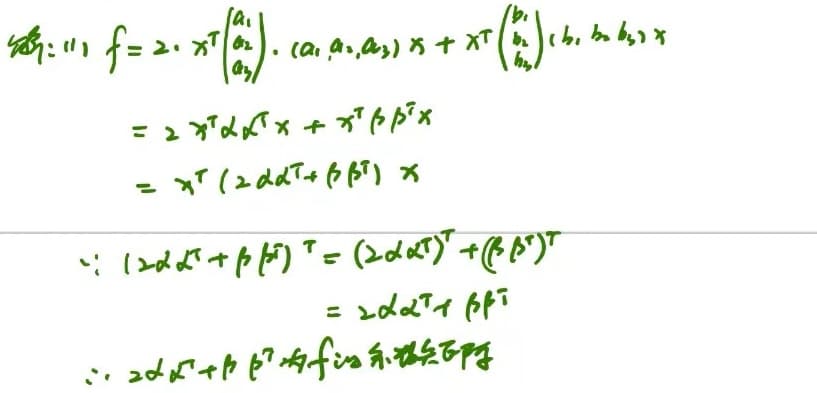 解:(1) f = 2·xᵀ(a₁ a₂ a₃)·(a₁,a₂,a₃)x + xᵀ(b₁ b₂ b₃)(b₁ b₂ b₃)x
= 2xᵀααᵀx + xᵀββᵀx
= xᵀ(2ααᵀ+ββᵀ)x
∵ (2ααᵀ+ββᵀ)ᵀ = (2ααᵀ)ᵀ+(ββᵀ)ᵀ
= 2ααᵀ+ββᵀ
∴ 2ααᵀ+ββᵀ为f的